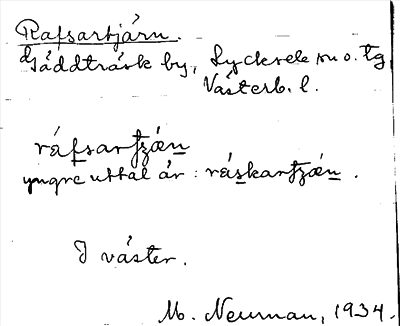 Rafsartjärn.
Gäddträsk by, Lycksele sn o. tg,
Västerb. l.
ráfsarʈʒǽn
yngre uttal är: ráskarʈʒǽn.
I väster.
M. Neuman, 1934.